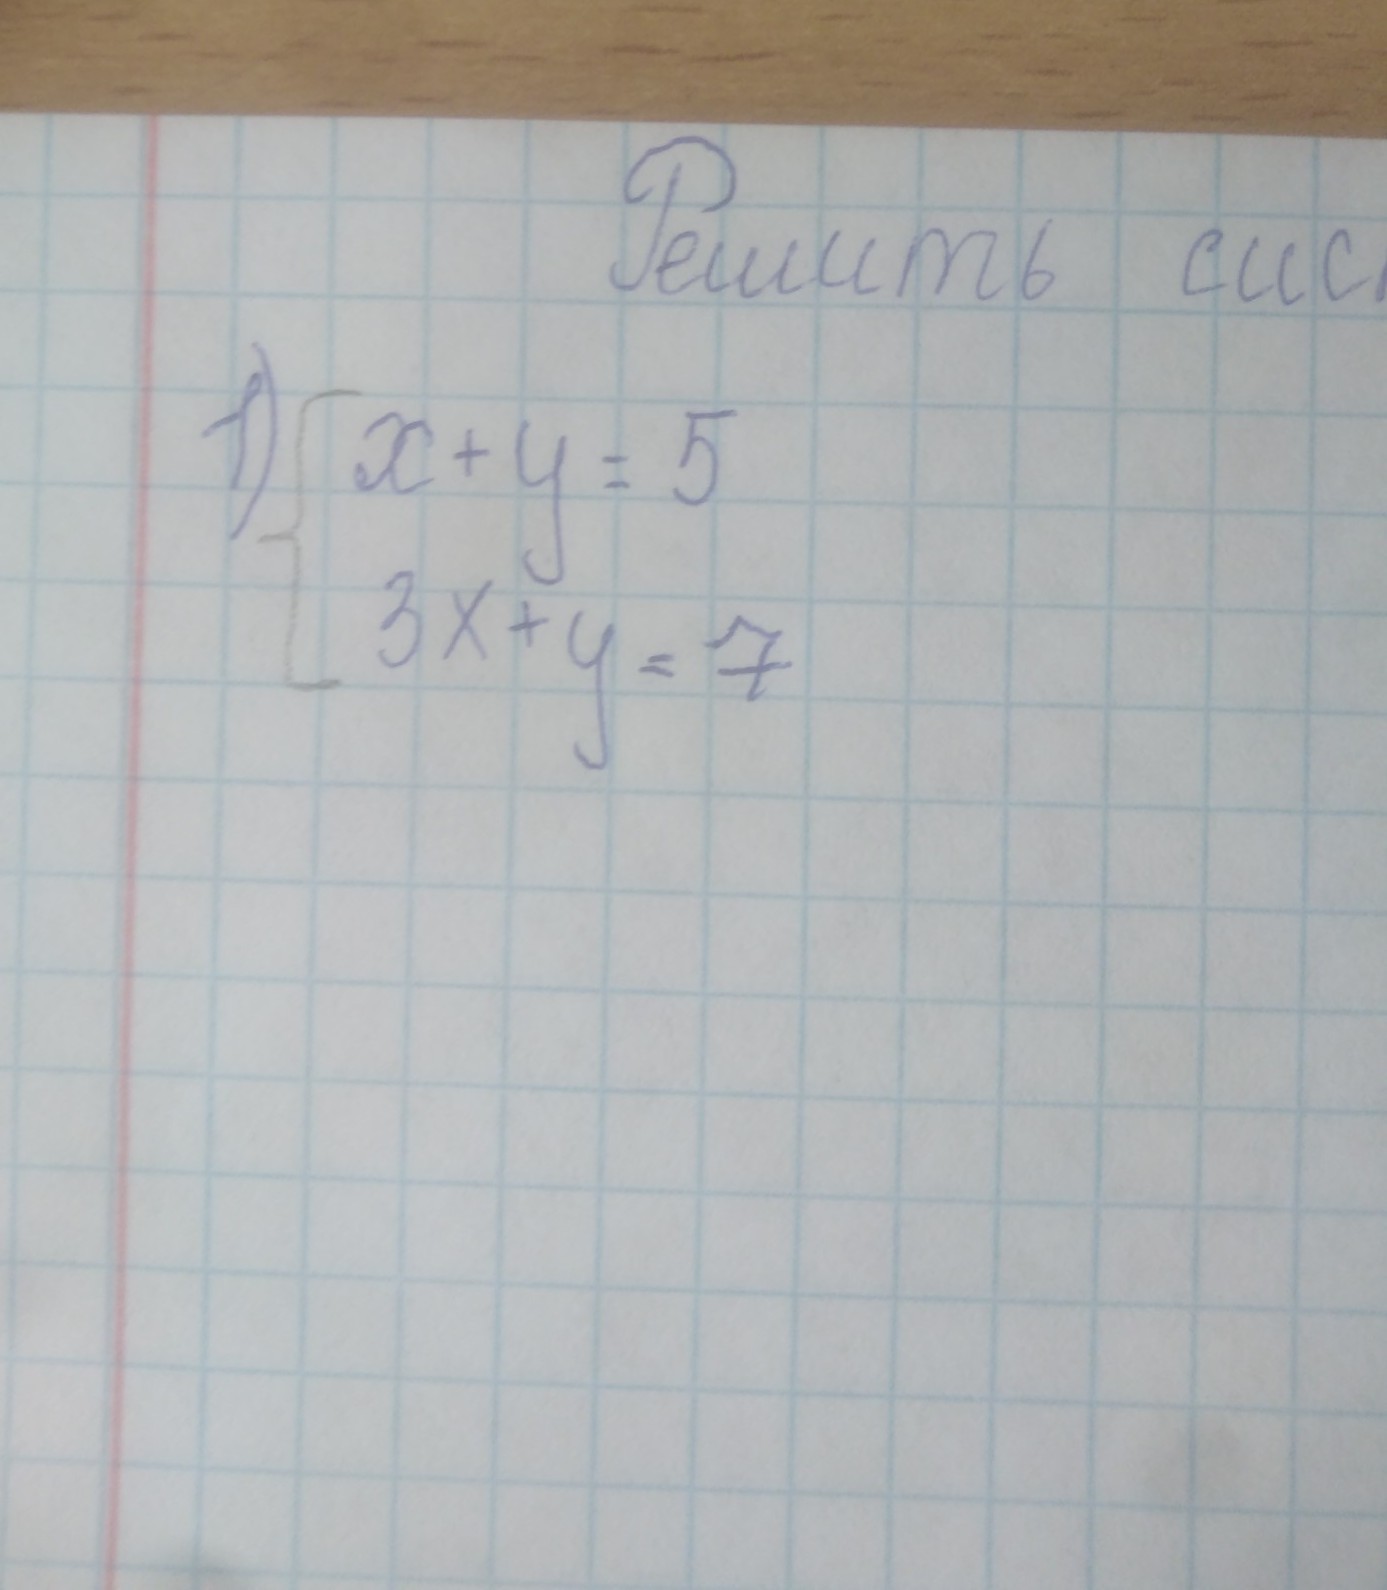 Решить сис
1) x+y=5
3x+y=7